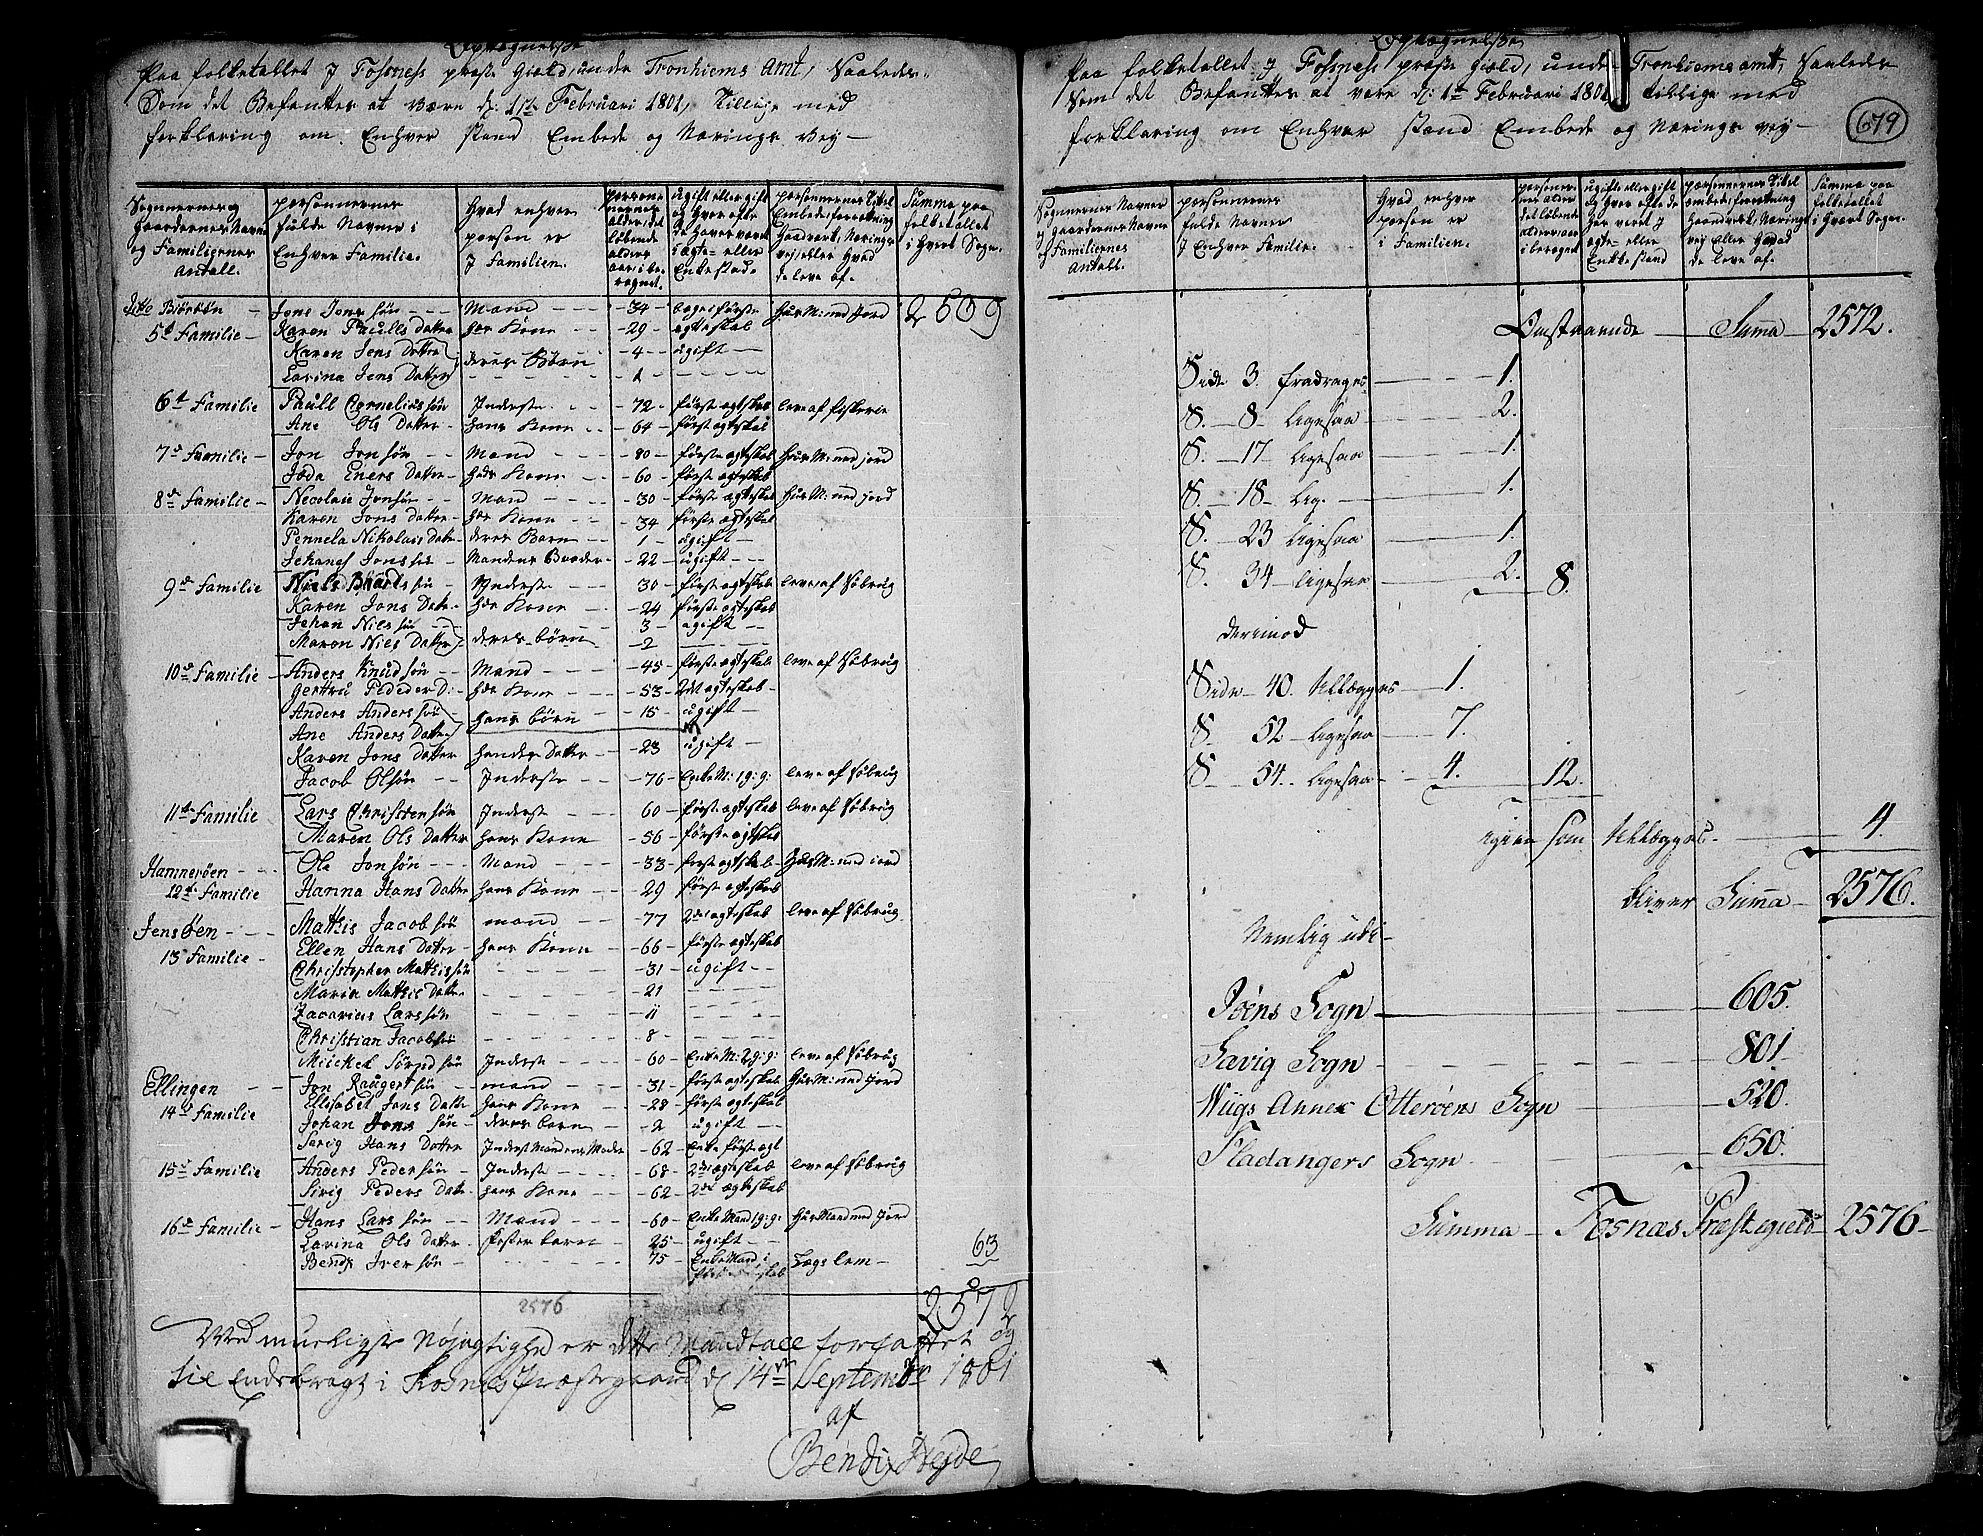 Optegnelse
Paa folketallet J Fosness præste Gield, under Tronhiems Amt, Saaledes
Som det Befantes at være d: 1te Februari 1801, Tillige med
forklaring om Enhver stand Embede og Nærings vej
Sognernes og Gaardernes Navne og Familiernes Antall.
personernes fulde Navne i Enhver Familie.
Hvad enhver person er J Familien.
personernes alder, det løbende alders aar iberegnet.
ugift eller gift og hver ofte de haver været i ægte- eller Enkestand.
personernes Titel Embede, forretning Haandverk, Nærings vej, eller Hvad de leve af.
Summa paa folketallet i Hvert Sogn.
ditto Biørøen Jens Jens søn Mand 34 begge første HuusM: med Jord 2509
5te Familie Karen Paulls Datter hs Kone 29 ægteskab
Karen Jens Datter deres Børn 4 ugift
Larina Jens Datter 1
6te Familie Paull Cornelius søn Inderste 72 første ægteskab leve af fiskerie
Ane Ols Datter hans Kone 64 første ægteskab
7de Familie Jon Jonsøn Mand 80 første ægteskab HuusM: med jord
Eners Datter hs Kone 60 første ægteskab
8de Familie Necolaie Jonsøn Mand 30 første ægteskab HuusM: med jord
Karen Jons Datter hs Kone 34 første ægteskab
Pennela Nikolais Datter deres Barn 1 ugift
Johanes Jonssøn Mandens Broder 22 ugift
9de Familie Niels Baards søn Inderste 30 første ægteskab leve af Søbrug
Karen Jons Datter hs Kone 24 første ægteskab
Johan Nils søn 3 ugift
Maron Niels Datter deres børn 2
10de Familie Anders Knudsøn Mand 45 første ægteskab leve af Søbrug
Gertru Peder D: hs Kone 53 2det ægteskab
Anders Anders søn hans børn 15 ugift
Ane Anders Datter
Karen Jons Datter hendes Datter 23 ugift
Jacob Olsøn Inderste 76 EnkeM: 1 g: g: leve af Søbrug
11te Familie Lars Christensøn Inderste 60 første ægteskab leve af Søbrug
Maren Ols Datter hans Kone 56 første ægteskab
Hamnerøen Ole Jonsøn Mand 33 første ægteskab HuusM: med jord
12te Familie Hanna Hans Datter hans Kone 29 første ægteskab
Jensøen Mathis Jacob søn mand 77 2det ægteskab leve af Søbrug
13de Familie Ellen Hans Datter hans Kone 66 første ægteskab
Christopher Mathis søn 31 ugift
Maria Mathis Datter 21
Zacarias Lars søn 11
Christian Jacobsøn 8
Mickel Sørend søn Inderste 60 EnkeM: 2 g: g: leve af Søbrug
Ellingen Jon Raugert søn mand 31 første ægteskab HuusM: med Jord
14de Familie Ellisabet Jons Datter hans Kone 28 første ægteskab
Johan Jons søn deres barn 2 ugift
Serig Hans Datter Inderst Mandens Moder 62 enke første ægt
15de Familie Anders Peder søn Inderste 68 2det ægteskab leve af Søbrug
Sirig Peders Datter hans Kone 62 2det ægteskab
16de Familie Hans Lars søn Mand 60 Enke Mand 1 g: g: Huus Mand med Jord
Larina Ols Datter foster barn 25 ugift 63
Bendx Iver søn 75 EnkeMand i første ægteskab Lægs lem
2576 2572
Med mueligste Nøjagtighed er dette Mandtall forfattet og
til Endebragt i Fosnes Præstegaard d 14de September 1801
af
Bendix Heyde
Optegnelse
Paa folketallet J Fosness præste Gield, under Tronhiems amt, Saaledes
Som det Befantes at være d: 1te Februari 1801 tillige med
forklaring om Enhver stand Embede og Nærings vej
679
Sognernes Navne og Gaardernes Navne og Familiernes Antall.
personernes fulde Navne J Enhver Familie.
Hvad enhver person er i Familien.
personernes alder det løbende alders aar iberegnet
ugifte eller gift og hver ofte de har været J ægte- eller Enkestand
personernes Titel embede, forretning Haandverk, Nærings vej eller Hvad de leve af.
Summa paa folketallet i Hvert Sogn.
Omstaaende Summa 2572.
Side 3 fradrages 1.
S. 8 ligesaa 2.
S. 17 ligesaa 1.
S. 18 lig. 1.
S. 23 ligesaa 1.
S. 34 ligesaa 2. 8.
derimod
Side 40. tillægges 1.
S 52 ligesaa 7.
S 54 ligesaa 4. 12.
igien som tillægges 4.
bliver Summa 2576.
Nemlig udi
Iøens Sogn 605.
Sævig Sogn 801
Wiigs Annex Otterøens Sogn 520
Fladangers Sogn 650.
Summa Fosnæs Præstegield 2576